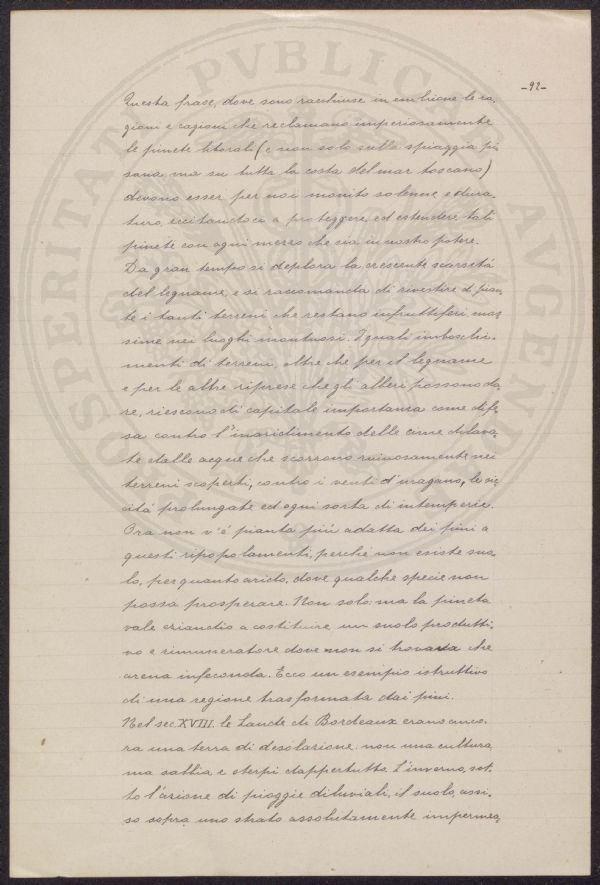 -92-
Questa frase, dove sono racchiuse in embrione le ra,
gioni e cagioni che reclamano imperiosamente
le pinete litorali (e non solo sulla spiaggia pi
sana, ma su tutta la costa del mar toscano)
devono esser per noi monito solenne e dura,
turo, eccitandoci a proteggere ed estendere tali
pinete con ogni mezzo che sia in nostro potere.
Da gran tempo si deplora la crescente scarsità
del legname, e si raccomanda di rivestire di pian,
te i tanti terreni che restano infruttiferi, mas
sime nei luoghi montuosi. I quali imboschi,
menti di terreni, oltre che per il legname
e per le altre riprese che gli alberi possono da,
re, riescono di capitale importanza come dife,
sa contro l'inaridimento delle cime dilava,
te dalle acque che scorrono ruinosamente nei
terreni scoperti, contro i venti d'uragano, le sic
cità prolungate ed ogni sorta di intemperie.
Ora non v'è pianta più adatta dei pini a
questi ripopolamenti, perchè non esiste suo,
lo, per quanto arido, dove qualche specie non
possa prosperare. Non solo: ma la pineta
vale eziandio a costituire un suolo produtti,
vo e rimuneratore dove non si trovava che
arena infeconda. Ecco un esempio istruttivo
di una regione trasformata dai pini.
Nel sec. XVIII. le Lande di Bordeaux erano anco,
ra una terra di desolazione: non una cultura,
ma sabbia e sterpi dappertutto. L'inverno, sot,
to l'azione di pioggie diluviali, il suolo, assi,
so sopra uno strato assolutamente impermea,
PROSPERITATI PVBLICAE AVGENDAE